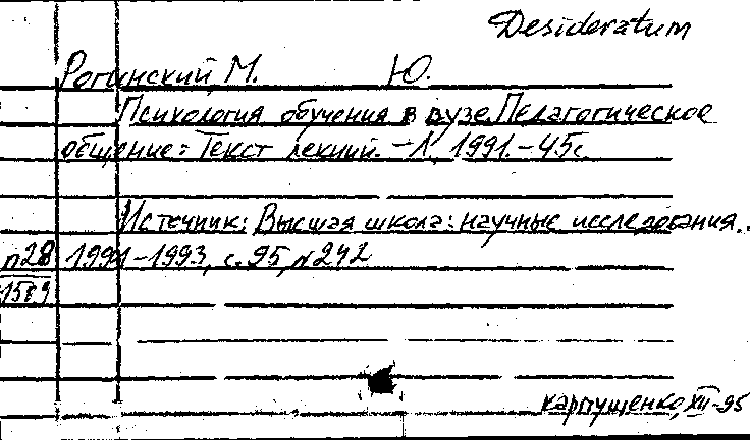 Desideratum
Рогинский М. Ю.
Психология обучения в вузе. Педагогическое
общение: Текст лекций. - Л, 1991. - 45с.
Источник: Высшая школа: научные исследования..
п28 1991-1993, с. 95, №242
1589
Карпущенко, XII-95